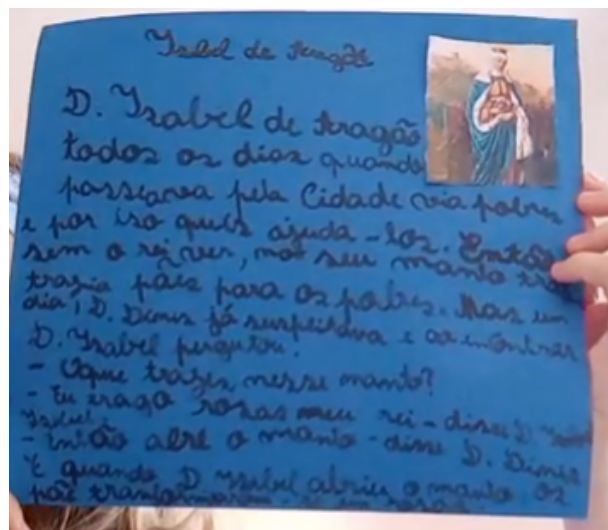 Isabel de Aragão
D. Isabel de Aragão
todos os dias quando
passeava pela Cidade via pobres
e por iso quis ajuda-los. Então
sem o rei ver, no seu manto
trazia pães para os pobres. Mas um
dia, D. Dinis já suspeitava e ao encontrar
D. Isabel pergutou:
- Oque trazes nesse manto?
- Eu trago rosas meu rei - disse D.
Isabel.
- Então abre o manto - disse D. Dinis
E quando D. Ysabel abriu o manto os
pãe tranformaram-se em rosas